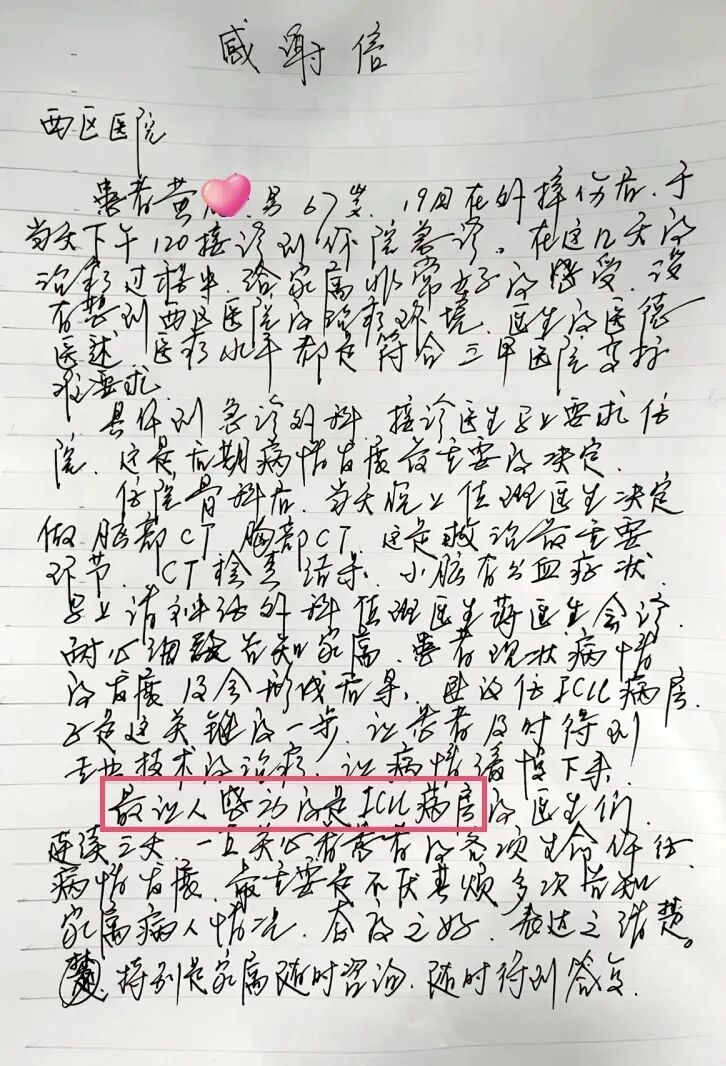 感谢信
西区医院
患者黄 男 67岁. 19日在外摔伤后,于
当天下午120接诊到你院急诊。在这几天的
治疗过程中.给家属非常好的感受.没
有想到西区医院的治疗环境.医生的医德
医术 医疗水平都是符合三甲医院
准要求.
具体到急诊外科.接诊医生马上要求住
院.这是后期病情发展最主要的决定.
住院骨科后.当天晚上值班医生决定
做脑部CT 胸部CT.这是救治最主要
环节. CT检查结果.小脑有出血症状.
马上请神经外科值班医生蒋医生会诊.
耐心细致告知家属.患者现状病情
的发展及会形成后果.建议住ICU病房.
正是这关键的一步.让患者及时得到
专业技术的治疗.让病情缓慢下来.
最让人感动的是ICU病房的医生们.
连续三天.一直关心着患者的各项生命体征.
病情发展.最主要是不厌其烦多次告知
家属病人情况.态度之好.表达之清楚。
楚.特别是家属随时咨询.随时得到答复.